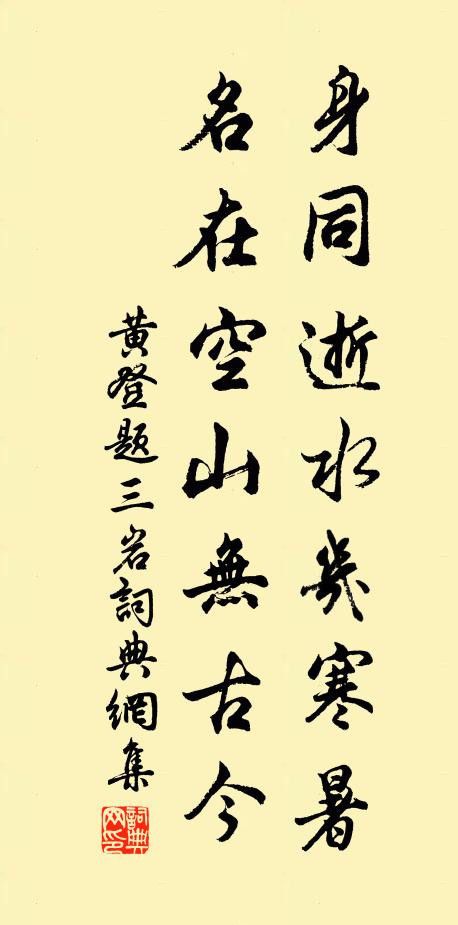 身同逝水幾寒暑
名在空山無古今
黃登題三岩詞典網集
詞典网印